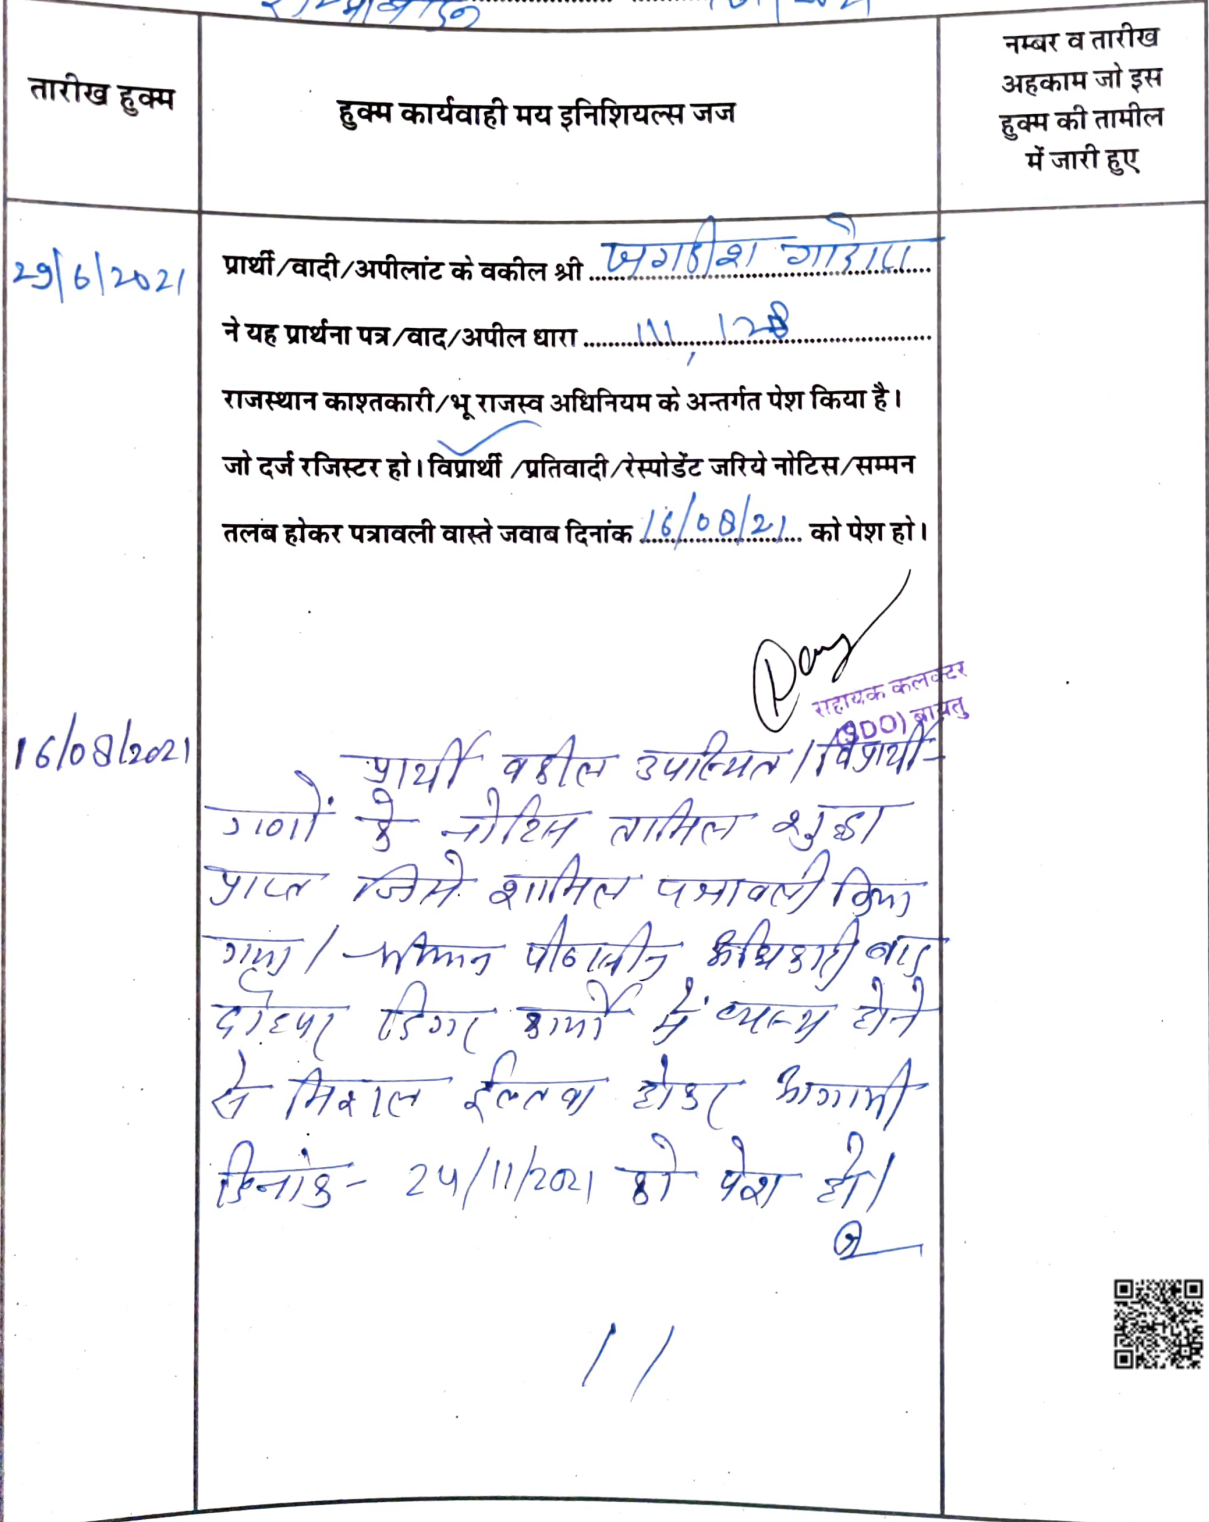 तारीख हुक्म
हुक्म कार्यवाही मय इनिशियल्स जज
नम्बर व तारीख
अहकाम जो इस
हुक्म की तामील
में जारी हुए
29/6/2021
प्रार्थी/वादी/अपीलांट के वकील श्री जगदीश गोदारा
ने यह प्रार्थना पत्र/वाद/अपील धारा 111, 128
राजस्थान काश्तकारी/भू राजस्व अधिनियम के अन्तर्गत पेश किया है।
जो दर्ज रजिस्टर हो। विप्रार्थी /प्रतिवादी/रेस्पोडेंट जरिये नोटिस/सम्मन
तलब होकर पत्रावली वास्ते जवाब दिनांक 16/08/21 को पेश हो।
सहायक कलक्टर
(SDO) बायतु
16/08/2021
प्रार्थी वकील उपस्थित। विप्रार्थी-
गणों के नोटिस तामिल शुदा
प्राप्त जिसे शामिल पत्रावली किया
गया। श्रीमान पीठासीन अधिकारी बाद
दोहपर दिगर कार्यो में व्यस्थ होने
से मिशल ईल्तवा होकर आगामी
दिनांक- 24/11/2021 को पेश हो।